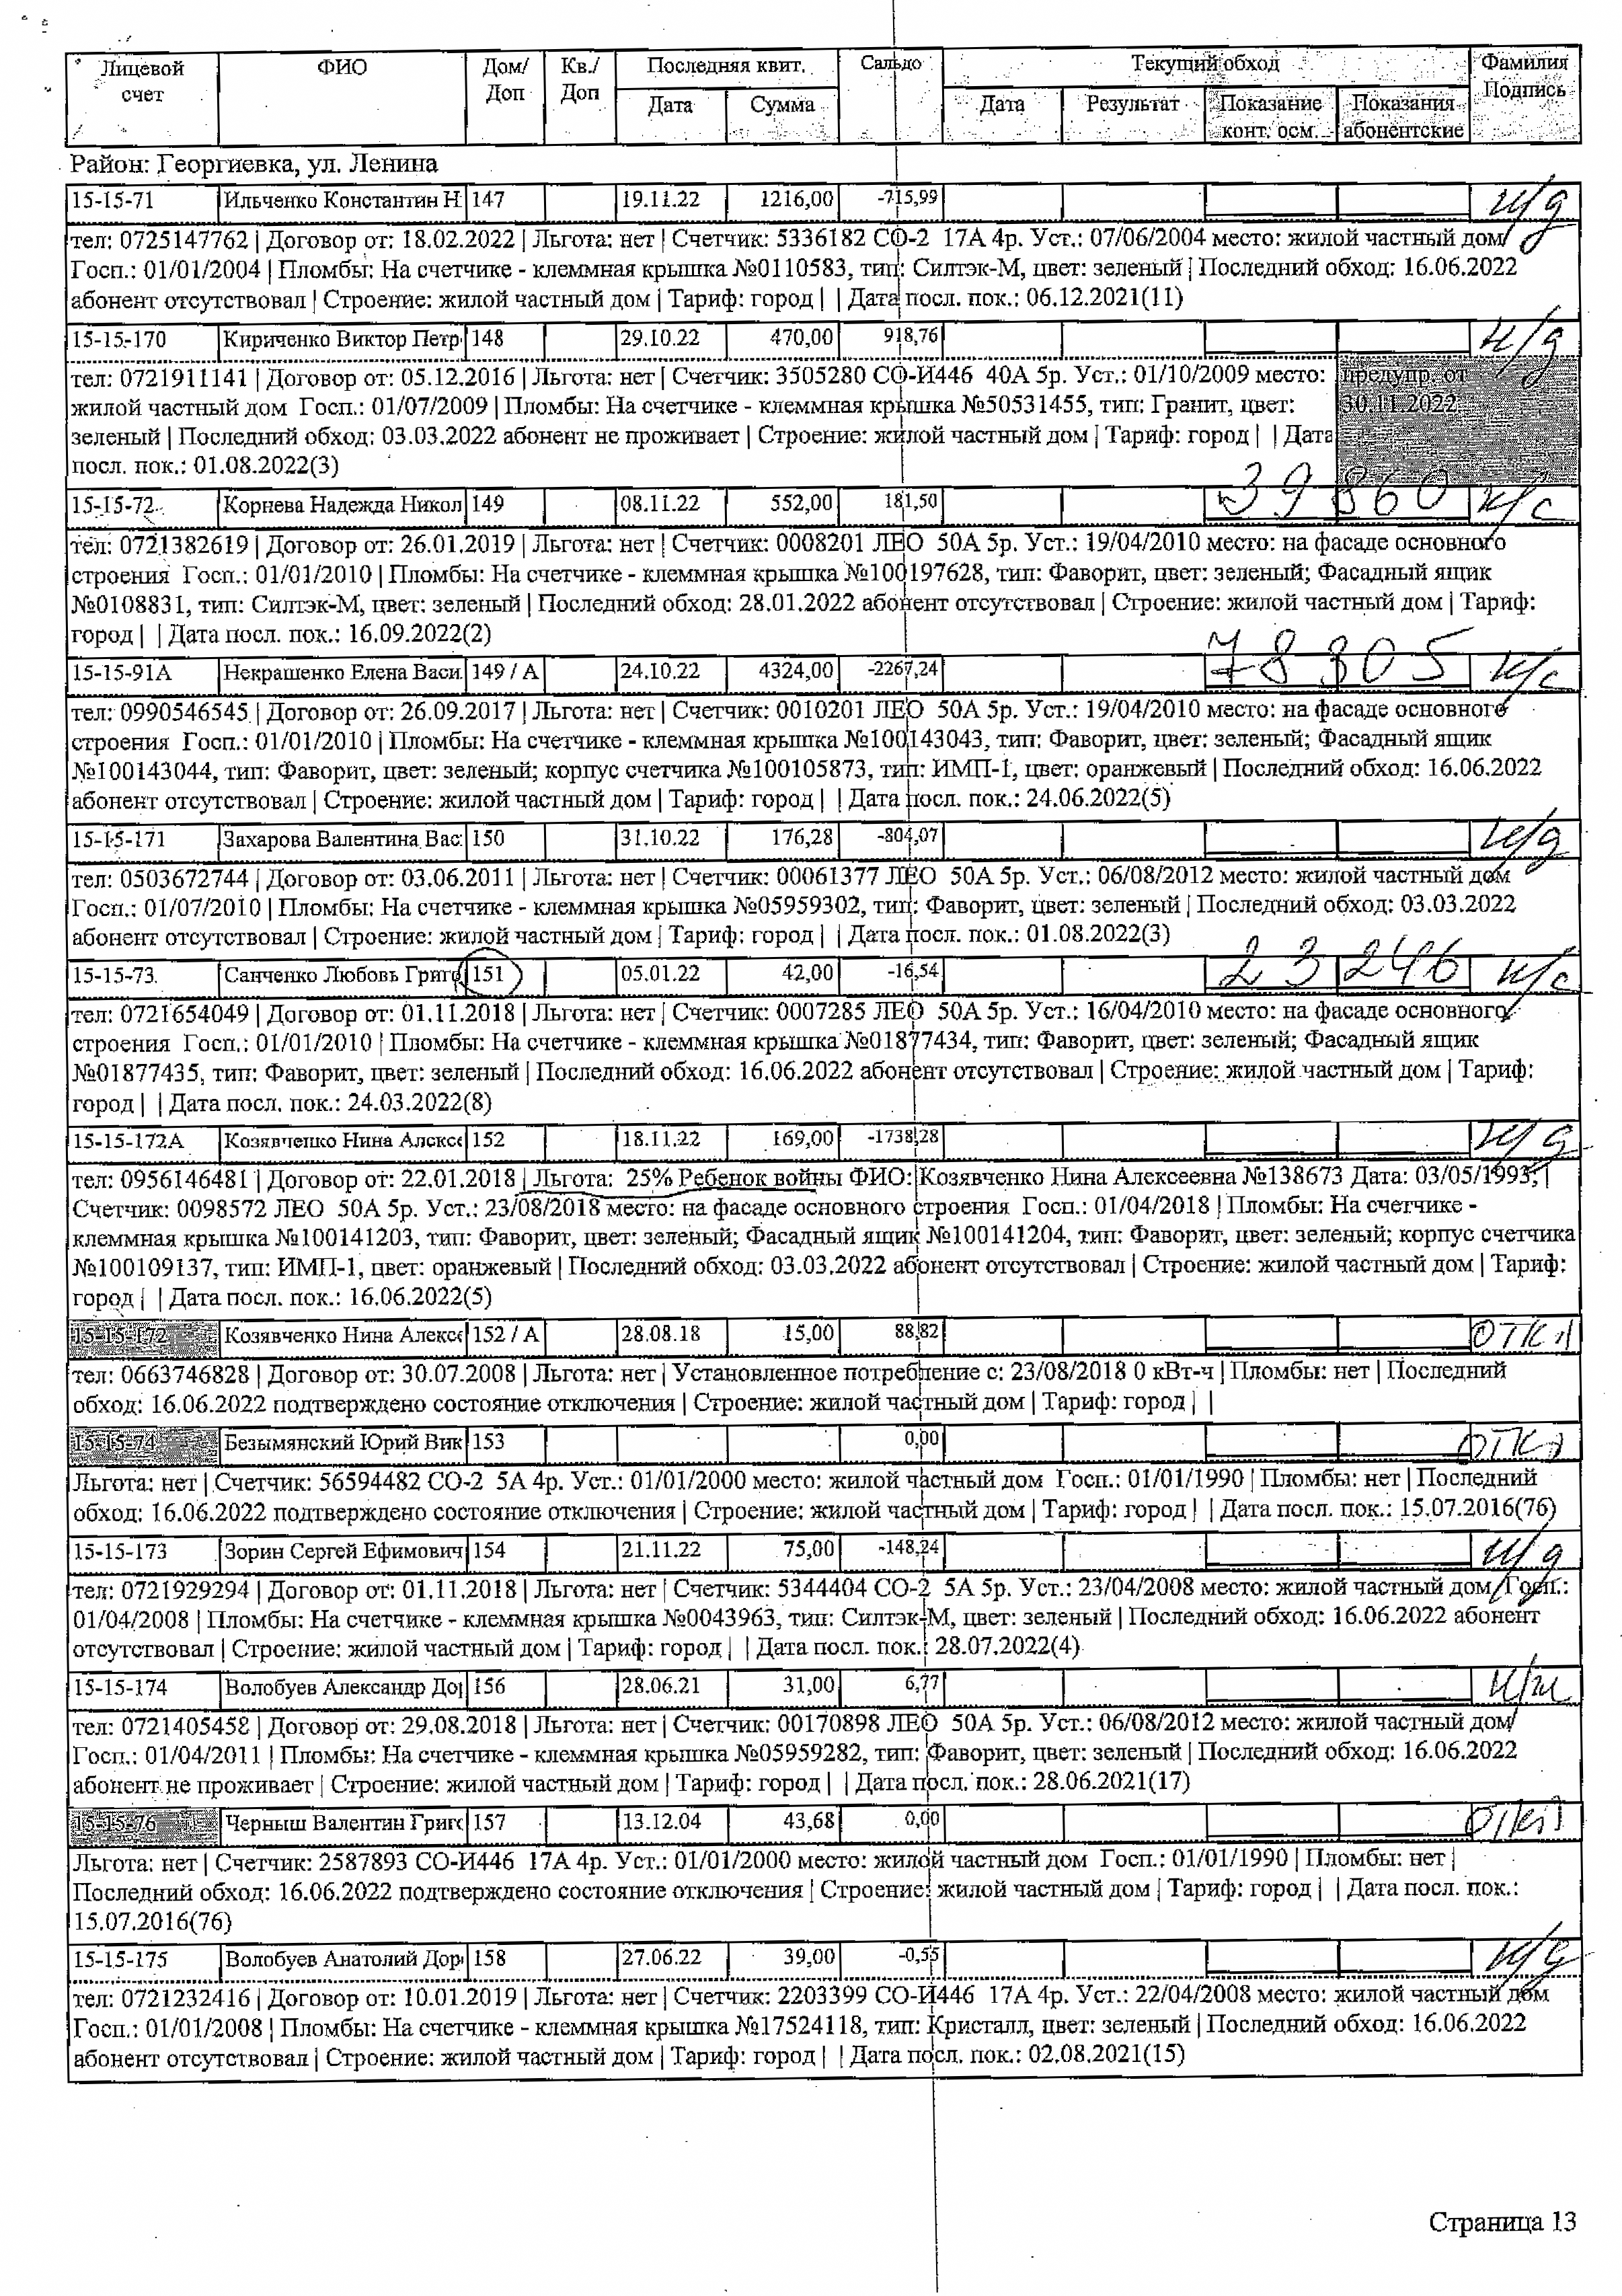 Лицевой счет ФИО Дом/ Доп Кв./ Доп Последняя квит. Сальдо Текущий обход Фамилия Подпись
Дата Сумма Дата Результат Показание конт. осм. Показания абонентские
Район: Георгиевка, ул. Ленина
15-15-71 Ильченко Константин Н 147 19.11.22 1216,00 -715,99 н/д
тел: 0725147762 | Договор от: 18.02.2022 | Льгота: нет | Счетчик: 5336182 СО-2 17А 4р. Уст.: 07/06/2004 место: жилой частный дом
Госп.: 01/01/2004 | Пломбы: На счетчике - клеммная крышка №0110583, тип: Силтэк-М, цвет: зеленый | Последний обход: 16.06.2022
абонент отсутствовал | Строение: жилой частный дом | Тариф: город | | Дата посл. пок.: 06.12.2021(11)
15-15-170 Кириченко Виктор Петр 148 29.10.22 470,00 918,76 н/д
тел: 0721911141 | Договор от: 05.12.2016 | Льгота: нет | Счетчик: 3505280 СО-И446 40А 5р. Уст.: 01/10/2009 место: предупр. от
жилой частный дом Госп.: 01/07/2009 | Пломбы: На счетчике - клеммная крышка №50531455, тип: Гранит, цвет: 30.11.2022
зеленый | Последний обход: 03.03.2022 абонент не проживает | Строение: жилой частный дом | Тариф: город | | Дата
посл. пок.: 01.08.2022(3)
15-15-72 Корнева Надежда Никол 149 08.11.22 552,00 181,50 39860 н/с
тел: 0721382619 | Договор от: 26.01.2019 | Льгота: нет | Счетчик: 0008201 ЛЕО 50А 5р. Уст.: 19/04/2010 место: на фасаде основного
строения Госп.: 01/01/2010 | Пломбы: На счетчике - клеммная крышка №100197628, тип: Фаворит, цвет: зеленый; Фасадный ящик
№0108831, тип: Силтэк-М, цвет: зеленый | Последний обход: 28.01.2022 абонент отсутствовал | Строение: жилой частный дом | Тариф:
город | | Дата посл. пок.: 16.09.2022(2)
15-15-91А Некрашенко Елена Васи 149 / А 24.10.22 4324,00 -2267,24 78305 н/с
тел: 0990546545 | Договор от: 26.09.2017 | Льгота: нет | Счетчик: 0010201 ЛЕО 50А 5р. Уст.: 19/04/2010 место: на фасаде основного
строения Госп.: 01/01/2010 | Пломбы: На счетчике - клеммная крышка №100143043, тип: Фаворит, цвет: зеленый; Фасадный ящик
№100143044, тип: Фаворит, цвет: зеленый; корпус счетчика №100105873, тип: ИМП-1, цвет: оранжевый | Последний обход: 16.06.2022
абонент отсутствовал | Строение: жилой частный дом | Тариф: город | | Дата посл. пок.: 24.06.2022(5)
15-15-171 Захарова Валентина Вас 150 31.10.22 176,28 -804,07 н/д
тел: 0503672744 | Договор от: 03.06.2011 | Льгота: нет | Счетчик: 00061377 ЛЕО 50А 5р. Уст.: 06/08/2012 место: жилой частный дом
Госп.: 01/07/2010 | Пломбы: На счетчике - клеммная крышка №05959302, тип: Фаворит, цвет: зеленый | Последний обход: 03.03.2022
абонент отсутствовал | Строение: жилой частный дом | Тариф: город | | Дата посл. пок.: 01.08.2022(3)
15-15-73 Санченко Любовь Григо 151 05.01.22 42,00 -16,54 23246 н/с
тел: 0721654049 | Договор от: 01.11.2018 | Льгота: нет | Счетчик: 0007285 ЛЕО 50А 5р. Уст.: 16/04/2010 место: на фасаде основного
строения Госп.: 01/01/2010 | Пломбы: На счетчике - клеммная крышка №01877434, тип: Фаворит, цвет: зеленый; Фасадный ящик
№01877435, тип: Фаворит, цвет: зеленый | Последний обход: 16.06.2022 абонент отсутствовал | Строение: жилой частный дом | Тариф:
город | | Дата посл. пок.: 24.03.2022(8)
15-15-172А Козявченко Нина Алексе 152 18.11.22 169,00 -1738,28 н/д
тел: 0956146481 | Договор от: 22.01.2018 | Льгота: 25% Ребенок войны ФИО: Козявченко Нина Алексеевна №138673 Дата: 03/05/1993; |
Счетчик: 0098572 ЛЕО 50А 5р. Уст.: 23/08/2018 место: на фасаде основного строения Госп.: 01/04/2018 | Пломбы: На счетчике -
клеммная крышка №100141203, тип: Фаворит, цвет: зеленый; Фасадный ящик №100141204, тип: Фаворит, цвет: зеленый; корпус счетчика
№100109137, тип: ИМП-1, цвет: оранжевый | Последний обход: 03.03.2022 абонент отсутствовал | Строение: жилой частный дом | Тариф:
город | | Дата посл. пок.: 16.06.2022(5)
15-15-172 Козявченко Нина Алексе 152 / А 28.08.18 15,00 88,82 ОТКЛ
тел: 0663746828 | Договор от: 30.07.2008 | Льгота: нет | Установленное потребление с: 23/08/2018 0 кВт-ч | Пломбы: нет | Последний
обход: 16.06.2022 подтверждено состояние отключения | Строение: жилой частный дом | Тариф: город | |
15-15-74 Безымянский Юрий Вик 153 0,00 ОТКЛ
Льгота: нет | Счетчик: 56594482 СО-2 5А 4р. Уст.: 01/01/2000 место: жилой частный дом Госп.: 01/01/1990 | Пломбы: нет | Последний
обход: 16.06.2022 подтверждено состояние отключения | Строение: жилой частный дом | Тариф: город | | Дата посл. пок.: 15.07.2016(76)
15-15-173 Зорин Сергей Ефимович 154 21.11.22 75,00 -148,24 н/д
тел: 0721929294 | Договор от: 01.11.2018 | Льгота: нет | Счетчик: 5344404 СО-2 5А 5р. Уст.: 23/04/2008 место: жилой частный дом Госп.:
01/04/2008 | Пломбы: На счетчике - клеммная крышка №0043963, тип: Силтэк-М, цвет: зеленый | Последний обход: 16.06.2022 абонент
отсутствовал | Строение: жилой частный дом | Тариф: город | | Дата посл. пок.: 28.07.2022(4)
15-15-174 Волобуев Александр До 156 28.06.21 31,00 6,77 н/ж
тел: 0721405458 | Договор от: 29.08.2018 | Льгота: нет | Счетчик: 00170898 ЛЕО 50А 5р. Уст.: 06/08/2012 место: жилой частный дом
Госп.: 01/04/2011 | Пломбы: На счетчике - клеммная крышка №05959282, тип: Фаворит, цвет: зеленый | Последний обход: 16.06.2022
абонент не проживает | Строение: жилой частный дом | Тариф: город | | Дата посл. пок.: 28.06.2021(17)
15-15-76 Черныш Валентин Григо 157 13.12.04 43,68 0,00 ОТКЛ
Льгота: нет | Счетчик: 2587893 СО-И446 17А 4р. Уст.: 01/01/2000 место: жилой частный дом Госп.: 01/01/1990 | Пломбы: нет |
Последний обход: 16.06.2022 подтверждено состояние отключения | Строение: жилой частный дом | Тариф: город | | Дата посл. пок.:
15.07.2016(76)
15-15-175 Волобуев Анатолий Дор 158 27.06.22 39,00 -0,55 н/д
тел: 0721232416 | Договор от: 10.01.2019 | Льгота: нет | Счетчик: 2203399 СО-И446 17А 4р. Уст.: 22/04/2008 место: жилой частный дом
Госп.: 01/01/2008 | Пломбы: На счетчике - клеммная крышка №17524118, тип: Кристалл, цвет: зеленый | Последний обход: 16.06.2022
абонент отсутствовал | Строение: жилой частный дом | Тариф: город | | Дата посл. пок.: 02.08.2021(15)
Страница 13